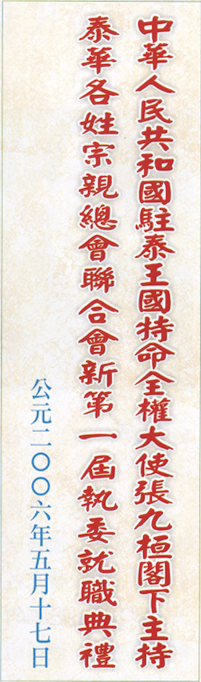 中華人民共和國駐泰王國特命全權大使張九桓閣下主持
泰華各姓宗親總會聯合會新第一屆執委就職典禮
公元二〇〇六年五月十七日